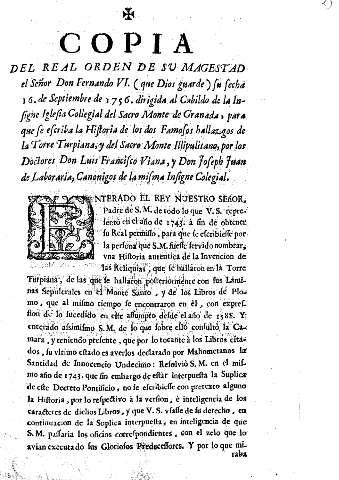 COPIA
DEL REAL ORDEN DE SU MAGESTAD
el Señor Don Fernando VI. (que Dios guarde) su fecha
16. de Septiembre de 1756. dirigida al Cabildo de la In-
signe Iglesia Collegial del Sacro Monte de Granada, para
que se escriba la Historia de los dos Famosos hallazgos de
la Torre Turpiana, y del Sacro Monte Illipulitano, por los
Doctores Don Luis Francisco Viana, y Don Joseph Juan
de Laboraria, Canonigos de la misma Insigne Colegial.
ENTERADO EL REY NUESTRO SEÑOR,
Padre de S.M. de todo lo que V.S. repre-
sentó en el año de 1743. à fin de obtener
su Real permisso, para que se escribiesse por
la persona que S.M. fuesse servido nombrar,
vna Historia autentica de la Invencion de
las Reliquias, que se hallaron en la Torre
Turpiana, de las que se hallaron posteriormente con sus Lámi-
nas Sepulcrales en el Monte Santo, y de los Libros de Plo-
mo, que al mismo tiempo se encontraron en él, con expres-
sion de lo sucedido en este assumpto desde el año de 1588. Y
enterado assimismo S.M. de lo que sobre ello consultó la Ca-
mara, y teniendo presente, que por lo tocante à los Libros cita-
dos, su vltimo estado es averlos declarado por Mahometanos la
Santidad de Innocencio Undecimo: Resolviò S.M. en el mis-
mo año de 1743. que sin embargo de estàr interpuesta la Suplica
de este Decreto Pontificio, no se escribiesse con pretexto alguno
la Historia, por lo respectivo à la version, è inteligencia de los
caractères de dichos Libros, y que V.S. vsasse de su derecho, en
continuacion de la Suplica interpuesta, en inteligencia de que
S.M. passaria los oficios correspondientes, con el zelo que lo
avian executado sus Gloriosos Predecessores. Y por lo que mi-
raba